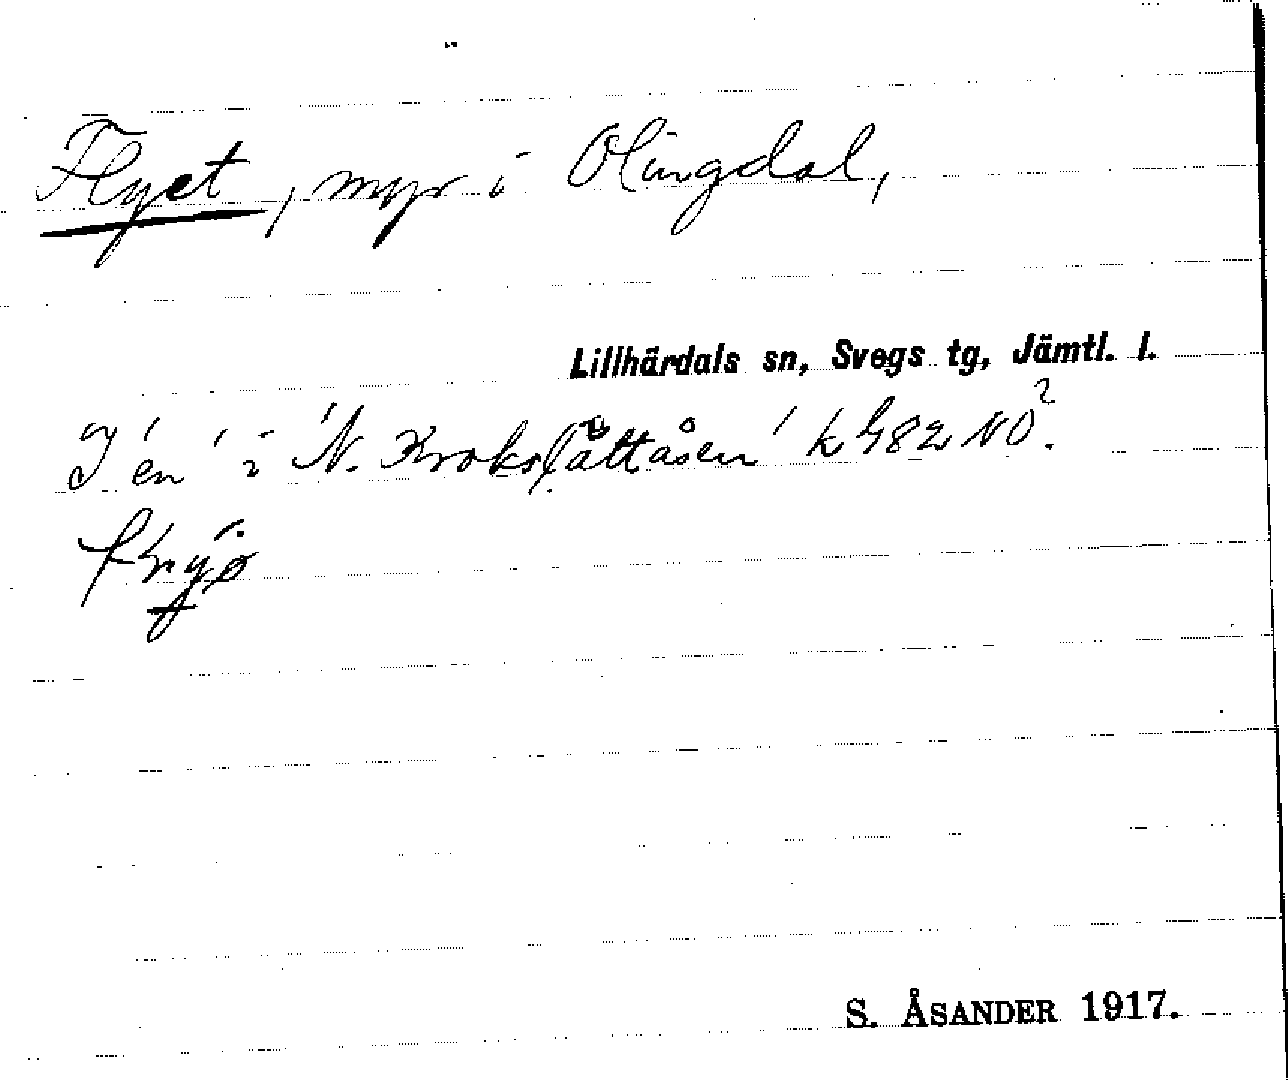 Flyet, myr i Olingdal,
Lillhärdals sn, Svegs tg, Jämtl. l.
I 'en' i 'N. Kroksjåttåsen' k 482 NO?.
S. ÅSANDER 1917.